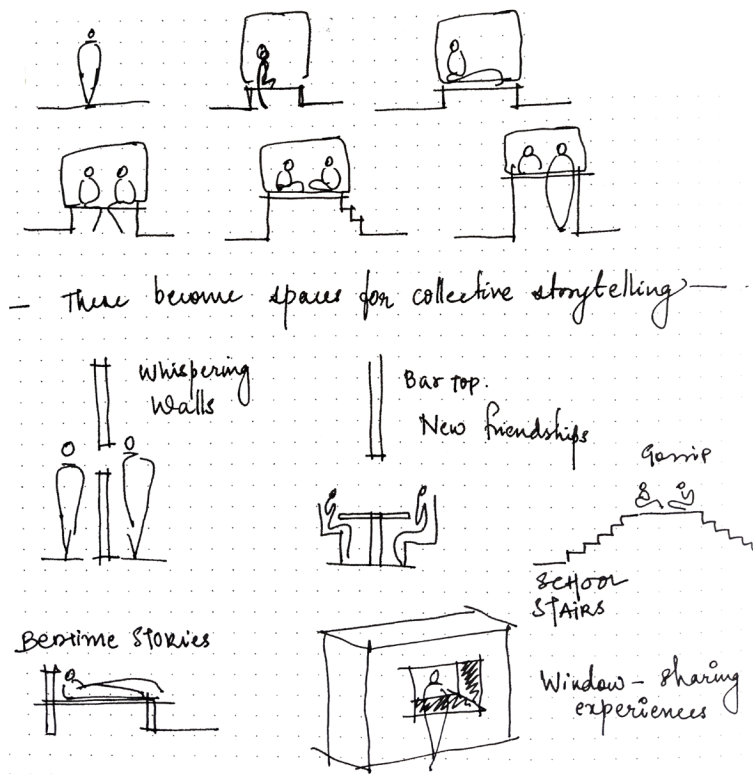 — These become spaces for collective storytelling —
Whispering
Walls
Bar top.
New friendships
Gossip
SCHOOL
STAIRS
BEDTIME STORIES
Window – sharing
experiences